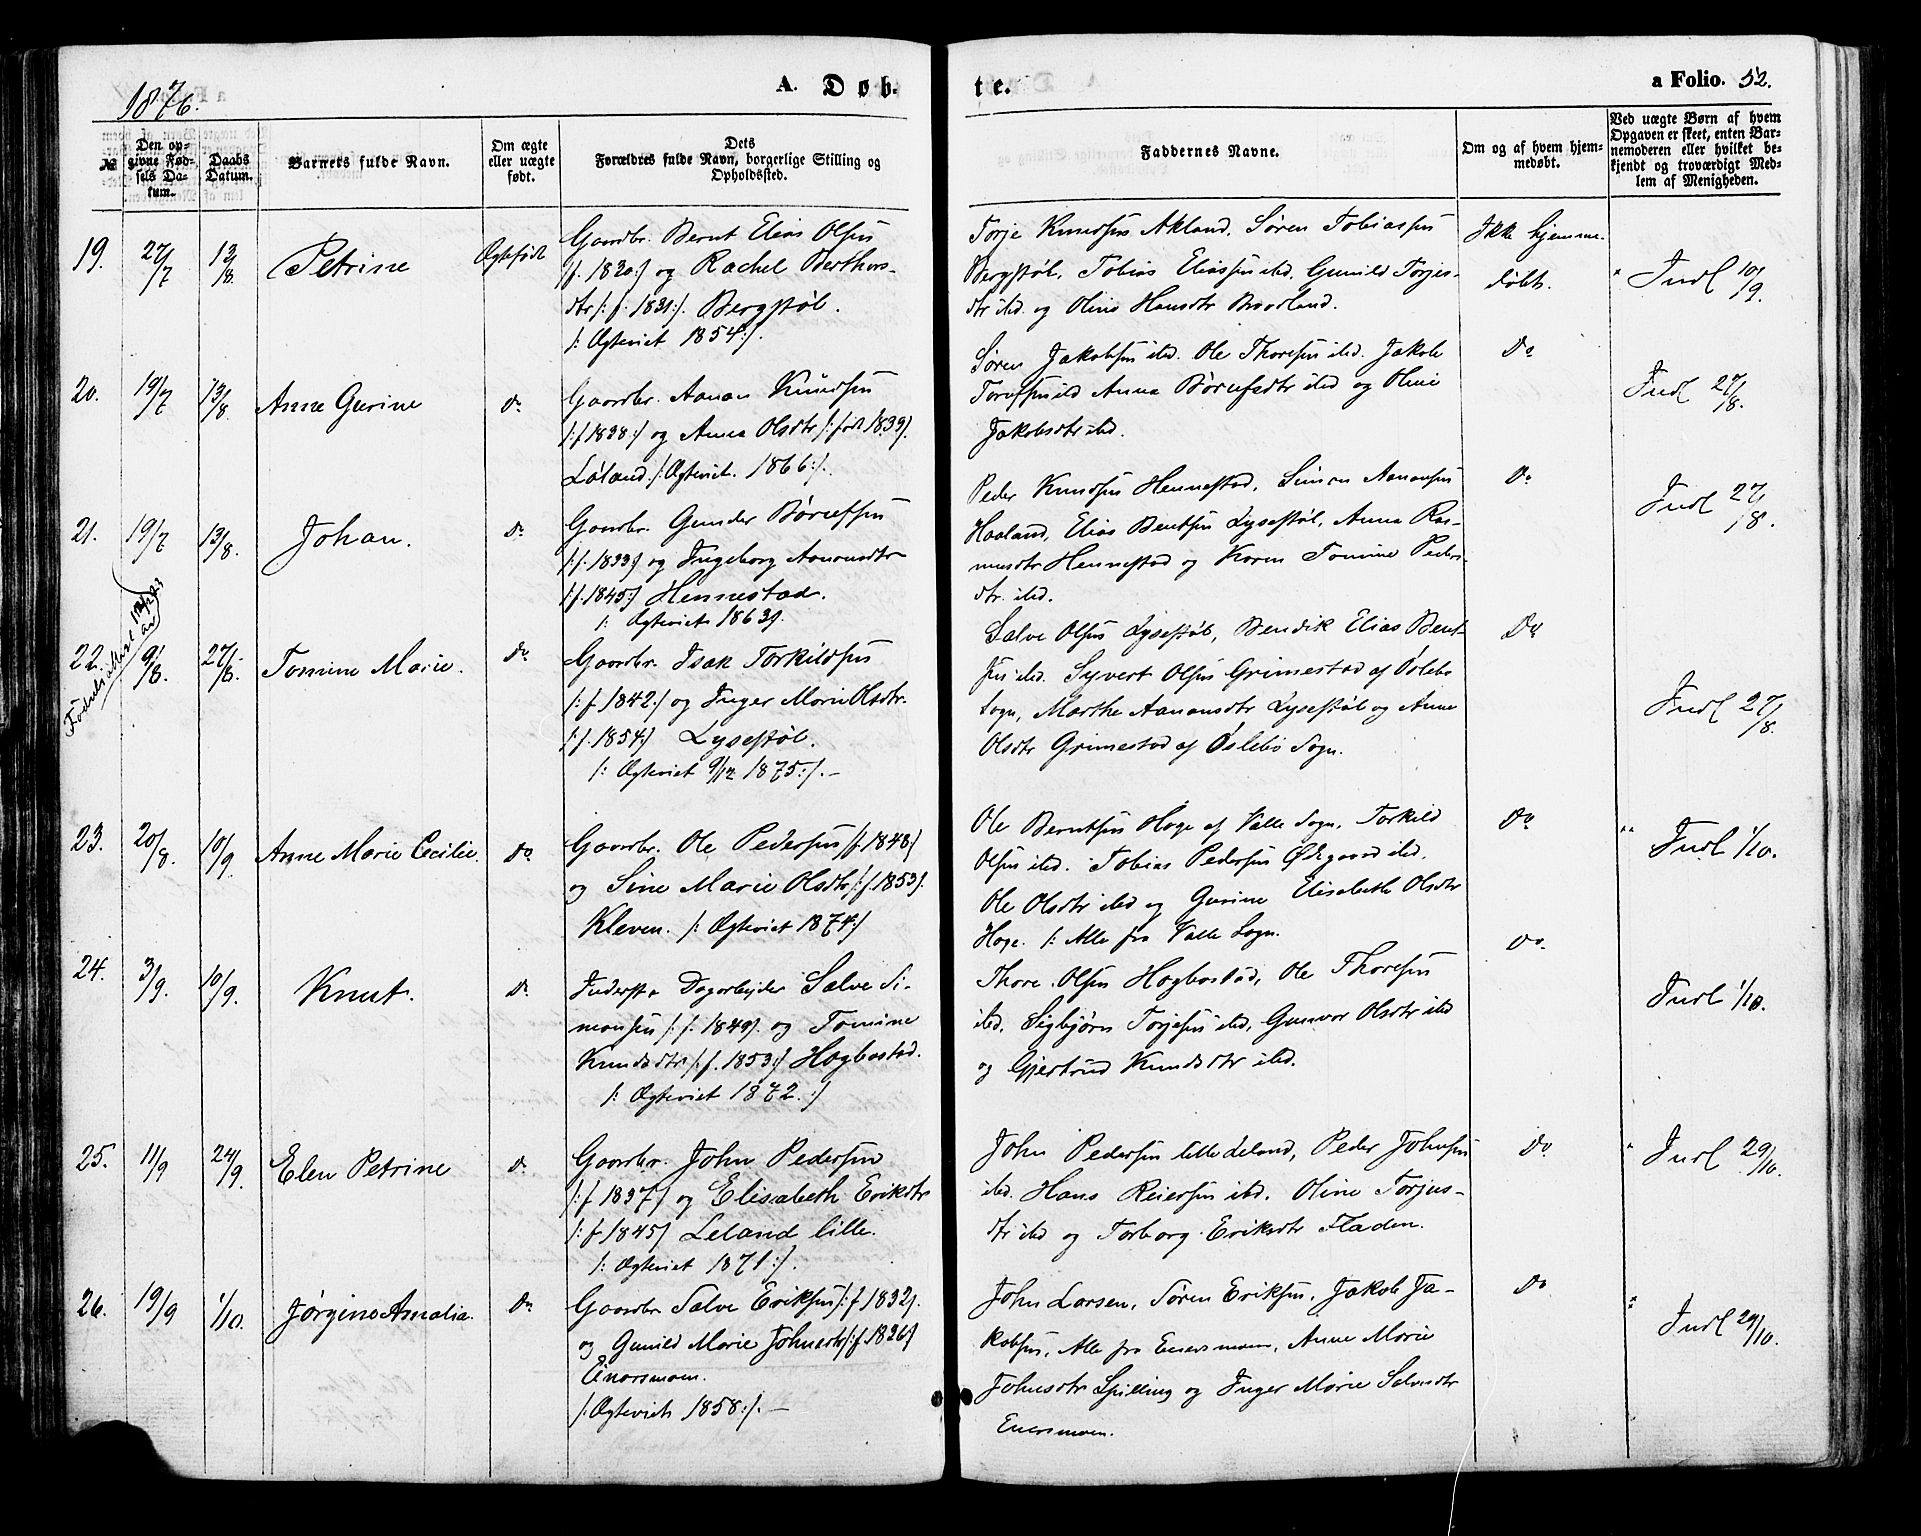 1876.
A. Døb-
te.
a Folio. 52.
№
Den op-
givne Fød-
sels Da-
tum.
Daabs
Datum.
Barnets fulde Navn.
Om ægte
eller uægte
født.
Dets
Forældres fulde Navn, borgerlige Stilling og
Opholdssted.
Faddernes Navne.
Om og af hvem hjem-
medøbt.
Ved uægte Børn af hvem
Opgaven er skeet, enten Bar-
nemoderen eller hvilket be-
kjendt og troværdigt Med-
lem af Menigheden.
19. 27/7 13/8 Petrine Ægtefødt
Gaardbr. Bernt Elias Olsen
/f. 1820:/ og Rachel Berthes-
dtr /: f. 1831:/. Bergstøl.
/: Ægteviet 1854:/.
Torje Knudsen Akland, Søren Tobiassen
Bergstøl, Tobias Eliassen ibd. Gunild Torjes-
dtr ibd. og Oline Hansdtr Broeland.
Ikke hjemme-
døbt.
Indl 10/9.
20. 19/7 13/8. Anne Gurine do
Gaardbr. Aanon Knudsen
/:f 1838:/ og Anna Olsdtr /: født 1839/.
Løland /: Ægteviet. 1866:/.
Søren Jakobsen ibd. Ole Thoresen ibd. Jakob
ibd Anna Børufsdtr ibd og Oline
Jakobsdtr ibd.
Do
Indl 27/8.
21. 19/7 13/8. Johan. do
Gaardbr. Gunder Børufsen
/:f. 1833/ og Ingeborg Aanonsdtr
/:f. 1845:/ Hennestad.
/: Ægteviet 1863/.
Peder Knudsen Hennestad, Simon Aanonsen
Haaland, Elias Bentsen Lysestøl, Anna Ras-
musdtr Hennestad og Karen Tomine Peders-
dtr. ibd.
Do
Indl 27/8.
Fødselsattest
22. 9/8. 27/8. Tomine Marie. do
Gaardbr. Isak Torkildsen
/:f 1842:/ og Inger Marie Olsdtr.
/:f. 1854:/ Lysestøl.
/: Ægteviet 9/12 1875:/. –
Salve Olsen Lysestøl, Bendik Elias Bent-
sen ibd. Syvert Olsen Grimestad af Øslebø
Sogn, Marthe Aanonsdtr Lysestøl og Anne
Olsdtr Grimestad af Øslebø Sogn.
Do
Indl 27/8.
23. 20/8. 10/9. Anne Marie Cecilie. do
Gaardbr. Ole Pedersen /f. 1848:/
og Sine Marie Olsdtr /:f. 1853/.
Kleven. /: Ægteviet 1874:/
Ole Berntsen Hoge af Valle Sogn, Torkild
Olsen ibd. Tobias Pedersen Ødegaard ibd.
Ole Olsdtr ibd og Gurine Elisabeth Olsdtr
Hoge. /: Alle fra Valle Sogn.
Do
Indl 1/10.
24. 3/9. 10/9. Knut. do
Inderst & Dagarbejder Salve Si-
monsen /: f. 1849/. og Tomine
Knudsdtr /: f. 1853:/ Hogbostad.
/: Ægteviet 1872.:/
Thore Olsen Hogbostad, Ole Thoresen
ibd. Sigbjørn Torjesen ibd, Gunvor Olsdtr ibd
og Gjertrud Knudsdtr ibd.
Do.
Indl 1/10.
25. 11/9 24/9. Elen Petrine do
Gaardbr. John Pedersen
/:f 1837/ og Elisabeth Eriksdtr
/:f 1845/ Leland lille.
/: Ægteviet 1871:/.
John Pedersen lille Leland, Peder Johnsen
ibd. Hans Reiersen ibd. Oline Torjus-
dtr ibd og Torborg Eriksdtr Fladen.
Do
Indl 29/10.
26. 19/9 1/10. Jørgine Amalia. do
Gaardbr Salve Eriksen /: f 1832/.
og Gunild Marie Johnsdtr /:f. 1836/
Einarsmoen.
/: Ægteviet 1858:/. –
John Larsen, Søren Eriksen, Jakob Ja-
kobsen, Alle fra Enersmoen, Anne Marie
Johnsdtr Spilling og Inger Marie Salvesdtr
Enersmoen.
Do
Indl 29/10.